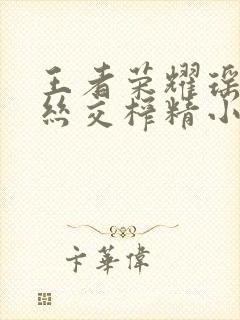 王者荣耀瑶
丝交榨精小
卞華偉